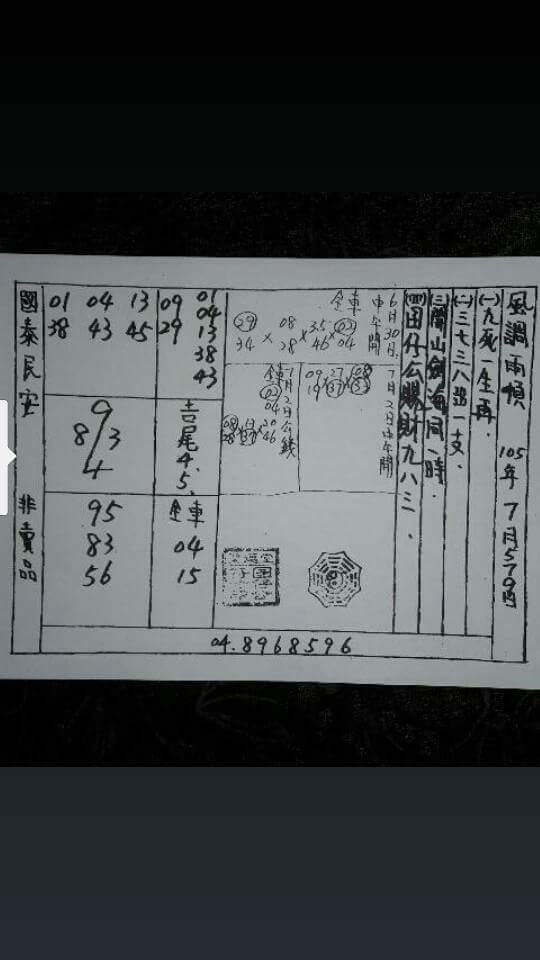 風調雨順 105年7月5.7.9日
(一)九死一生再.
(二)三七三八強一支.
(三)開山劍海同一時.
(四)田仔公賜財九八三.
6月30日.中午開
全車
29 34 × 08 28 × 35 46 × 02 04
7月2日中午開
09 19 × 27 37 ×
7月2日公錢
全車
02 04
01
04
13
38
43
09
29
吉尾4.5.
全車
04
15
01 04 13
38 43 45
9
8/3
4
95
83
56
國泰民安 非賣品
04.8968596